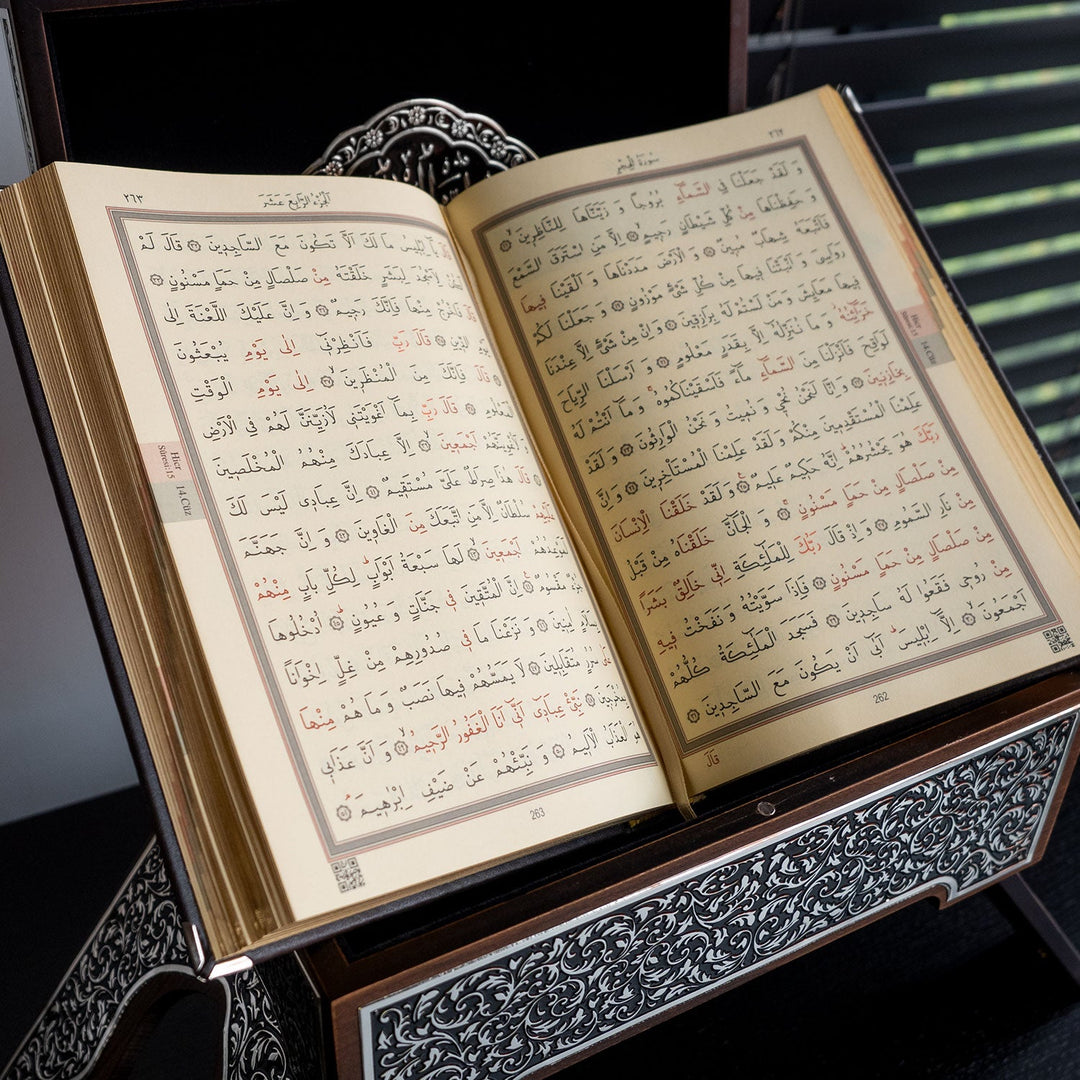 ٢٦٢
سُورَةُ الْحِجْرِ
وَ لَقَدْ جَعَلْنَا فِي السَّمَٓاءِ بُرُوجًا وَ زَيَّنَّاهَا لِلنَّاظِرٖينَ ﴿١٦﴾
وَ حَفِظْنَاهَا مِنْ كُلِّ شَيْطَانٍ رَجٖيمٍ ﴿١٧﴾ اِلَّا مَنِ اسْتَرَقَ السَّمْعَ
فَاَتْبَعَهُ شِهَابٌ مُبٖينٌ ﴿١٨﴾ وَ الْاَرْضَ مَدَدْنَاهَا وَ اَلْقَيْنَا فٖيهَا
رَوَاسِيَ وَ اَنْبَتْنَا فٖيهَا مِنْ كُلِّ شَيْءٍ مَوْزُونٍ ﴿١٩﴾ وَ جَعَلْنَا لَكُمْ
فٖيهَا مَعَايِشَ وَ مَنْ لَسْتُمْ لَهُ بِرَازِقٖينَ ﴿٢٠﴾ وَ اِنْ مِنْ شَيْءٍ اِلَّا عِنْدَنَا
خَزَٓائِنُهُ وَ مَا نُنَزِّلُهُ اِلَّا بِقَدَرٍ مَعْلُومٍ ﴿٢١﴾ وَ اَرْسَلْنَا الرِّيَاحَ
لَوَاقِحَ فَاَنْزَلْنَا مِنَ السَّمَٓاءِ مَٓاءً فَاَسْقَيْنَاكُمُوهُ وَ مَٓا اَنْتُمْ لَهُ
بِخَازِنٖينَ ﴿٢٢﴾ وَ اِنَّا لَنَحْنُ نُحْيٖ وَ نُمٖيتُ وَ نَحْنُ الْوَارِثُونَ ﴿٢٣﴾ وَ لَقَدْ
عَلِمْنَا الْمُسْتَقْدِمٖينَ مِنْكُمْ وَ لَقَدْ عَلِمْنَا الْمُسْتَاْخِرٖينَ ﴿٢٤﴾ وَ اِنَّ
رَبَّكَ هُوَ يَحْشُرُهُمْ اِنَّهُ حَكٖيمٌ عَلٖيمٌ ﴿٢٥﴾ وَ لَقَدْ خَلَقْنَا الْاِنْسَانَ
مِنْ صَلْصَالٍ مِنْ حَمَاٍ مَسْنُونٍ ﴿٢٦﴾ وَ الْجَٓانَّ خَلَقْنَاهُ مِنْ قَبْلُ
مِنْ نَارِ السَّمُومِ ﴿٢٧﴾ وَ اِذْ قَالَ رَبُّكَ لِلْمَلٰٓئِكَةِ اِنّٖي خَالِقٌ بَشَرًا
مِنْ صَلْصَالٍ مِنْ حَمَاٍ مَسْنُونٍ ﴿٢٨﴾ فَاِذَا سَوَّيْتُهُ وَ نَفَخْتُ فٖيهِ
مِنْ رُوحٖي فَقَعُوا لَهُ سَاجِدٖينَ ﴿٢٩﴾ فَسَجَدَ الْمَلٰٓئِكَةُ كُلُّهُمْ
اَجْمَعُونَ ﴿٣٠﴾ اِلَّٓا اِبْلٖيسَ اَبٰٓى اَنْ يَكُونَ مَعَ السَّاجِدٖينَ ﴿٣١﴾
قَالَ
262
Hicr
Sûresi:15
14.Cüz
٢٦٣
اَلْجُزْءُ الرَّابِعَ عَشَرَ
قَالَ يَٓا اِبْلٖيسُ مَا لَكَ اَلَّا تَكُونَ مَعَ السَّاجِدٖينَ ﴿٣٢﴾ قَالَ لَمْ
اَكُنْ لِاَسْجُدَ لِبَشَرٍ خَلَقْتَهُ مِنْ صَلْصَالٍ مِنْ حَمَاٍ مَسْنُونٍ ﴿٣٣﴾
قَالَ فَاخْرُجْ مِنْهَا فَاِنَّكَ رَجٖيمٌ ﴿٣٤﴾ وَ اِنَّ عَلَيْكَ اللَّعْنَةَ اِلٰى
يَوْمِ الدّٖينِ ﴿٣٥﴾ قَالَ رَبِّ فَاَنْظِرْنٖٓي اِلٰى يَوْمِ يُبْعَثُونَ
﴿٣٦﴾ قَالَ فَاِنَّكَ مِنَ الْمُنْظَرٖينَ ﴿٣٧﴾ اِلٰى يَوْمِ الْوَقْتِ
الْمَعْلُومِ ﴿٣٨﴾ قَالَ رَبِّ بِمَٓا اَغْوَيْتَنٖي لَاُزَيِّنَنَّ لَهُمْ فِي الْاَرْضِ
وَ لَاُغْوِيَنَّهُمْ اَجْمَعٖينَ ﴿٣٩﴾ اِلَّا عِبَادَكَ مِنْهُمُ الْمُخْلَصٖينَ
﴿٤٠﴾ قَالَ هٰذَا صِرَاطٌ عَلَيَّ مُسْتَقٖيمٌ ﴿٤١﴾ اِنَّ عِبَادٖي لَيْسَ لَكَ
عَلَيْهِمْ سُلْطَانٌ اِلَّا مَنِ اتَّبَعَكَ مِنَ الْغَاوٖينَ ﴿٤٢﴾ وَ اِنَّ جَهَنَّمَ
لَمَوْعِدُهُمْ اَجْمَعٖينَ ﴿٤٣﴾ لَهَا سَبْعَةُ اَبْوَابٍ لِكُلِّ بَابٍ مِنْهُمْ
جُزْءٌ مَقْسُومٌ ﴿٤٤﴾ اِنَّ الْمُتَّقٖينَ فٖي جَنَّاتٍ وَ عُيُونٍ ﴿٤٥﴾ اُدْخُلُوهَا
بِسَلَامٍ اٰمِنٖينَ ﴿٤٦﴾ وَ نَزَعْنَا مَا فٖي صُدُورِهِمْ مِنْ غِلٍّ اِخْوَانًا
عَلٰى سُرُرٍ مُتَقَابِلٖينَ ﴿٤٧﴾ لَا يَمَسُّهُمْ فٖيهَا نَصَبٌ وَ مَا هُمْ مِنْهَا
بِمُخْرَجٖينَ ﴿٤٨﴾ نَبِّئْ عِبَادٖٓي اَنّٖٓي اَنَا الْغَفُورُ الرَّحٖيمُ ﴿٤٩﴾ وَ اَنَّ عَذَابٖي
هُوَ الْعَذَابُ الْاَلٖيمُ ﴿٥٠﴾ وَ نَبِّئْهُمْ عَنْ ضَيْفِ اِبْرٰهٖيمَ ﴿٥١﴾
263
Hicr
Sûresi:15
14.Cüz